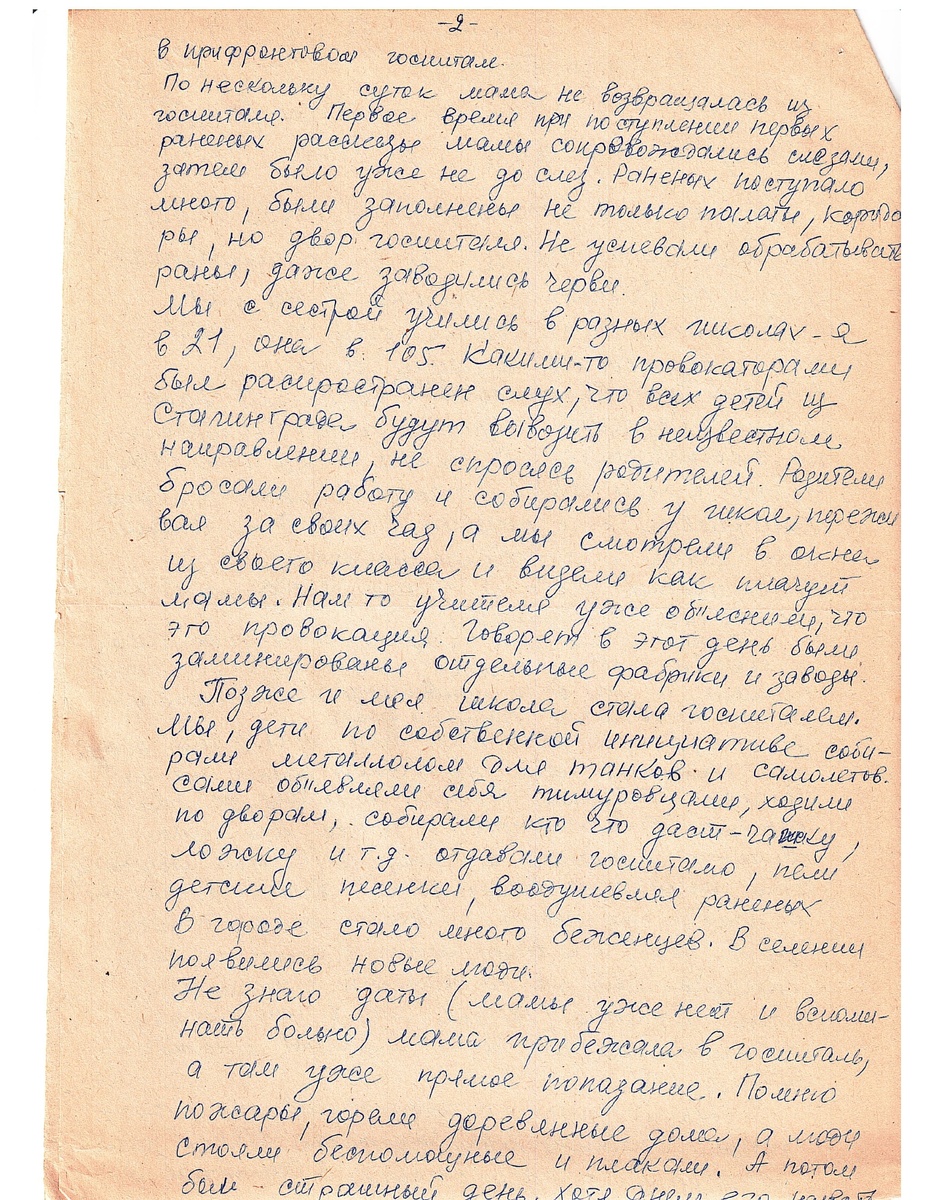 -2-
в прифронтовом госпитале.
По нескольку суток мама не возвращалась из
госпиталя. Первое время при поступлении первых
раненых рассказы мамы сопровождались слезами,
затем было уже не до слез. Раненых поступало
много, были заполнены не только палаты, коридо
ры, но двор госпиталя. Не успевали обрабатывать
раны, даже заводились черви.
Мы с сестрой учились в разных школах - я
в 21, она в 105. Какими-то провокаторами
был распространен слух, что всех детей из
Сталинграда будут вывозить в неизвестном
направлении, не спросясь родителей. Родители
бросали работу и собирались у школ, пережи
вая за своих чад, а мы смотрели в окна
из своего класса и видели как плачут
мамы. Нам то учителя уже объяснили, что
это провокация. Говорят в этот день были
заминированы отдельные фабрики и заводы.
Позже и моя школа стала госпиталем.
Мы, дети по собственной инициативе соби-
рали металлолом для танков и самолетов.
Сами объявляли себя тимуровцами, ходили
по дворам, собирали кто что даст - чашку,
ложку и т.д. отдавали госпиталю, пели
детские песенки, воодушевляя раненых
В городе стало много беженцев. В селении
появились новые люди.
Не знаю даты (мамы уже нет и вспоми-
нать больно) мама прибежала в госпиталь,
а там уже прямое попадание. Помню
пожары, горели деревянные дома, а люди
стояли беспомощные и плакали. А потом
был страшный день, хотя днем его